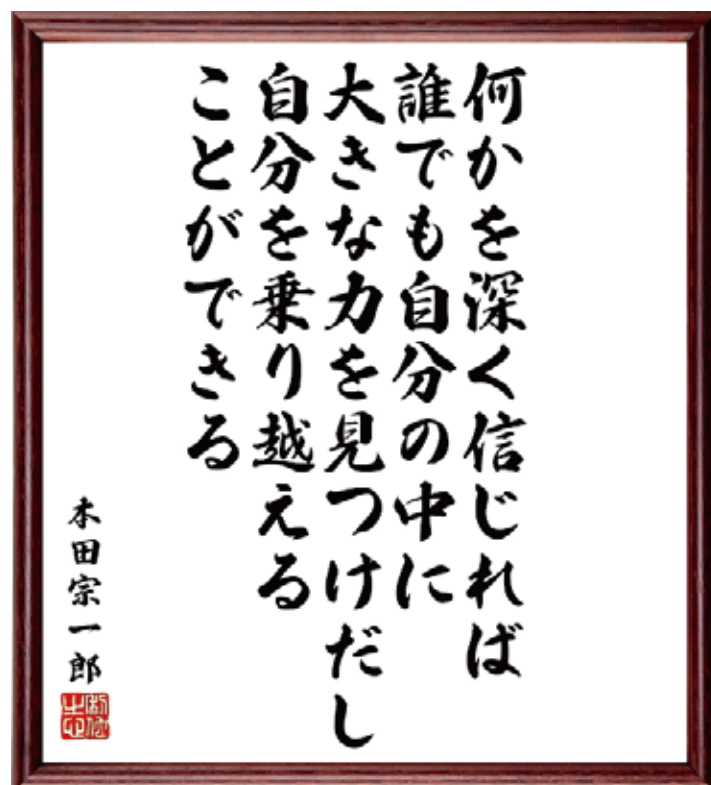 何かを深く信じれば
誰でも自分の中に
大きな力を見つけだし
自分を乗り越える
ことができる
本田宗一郎